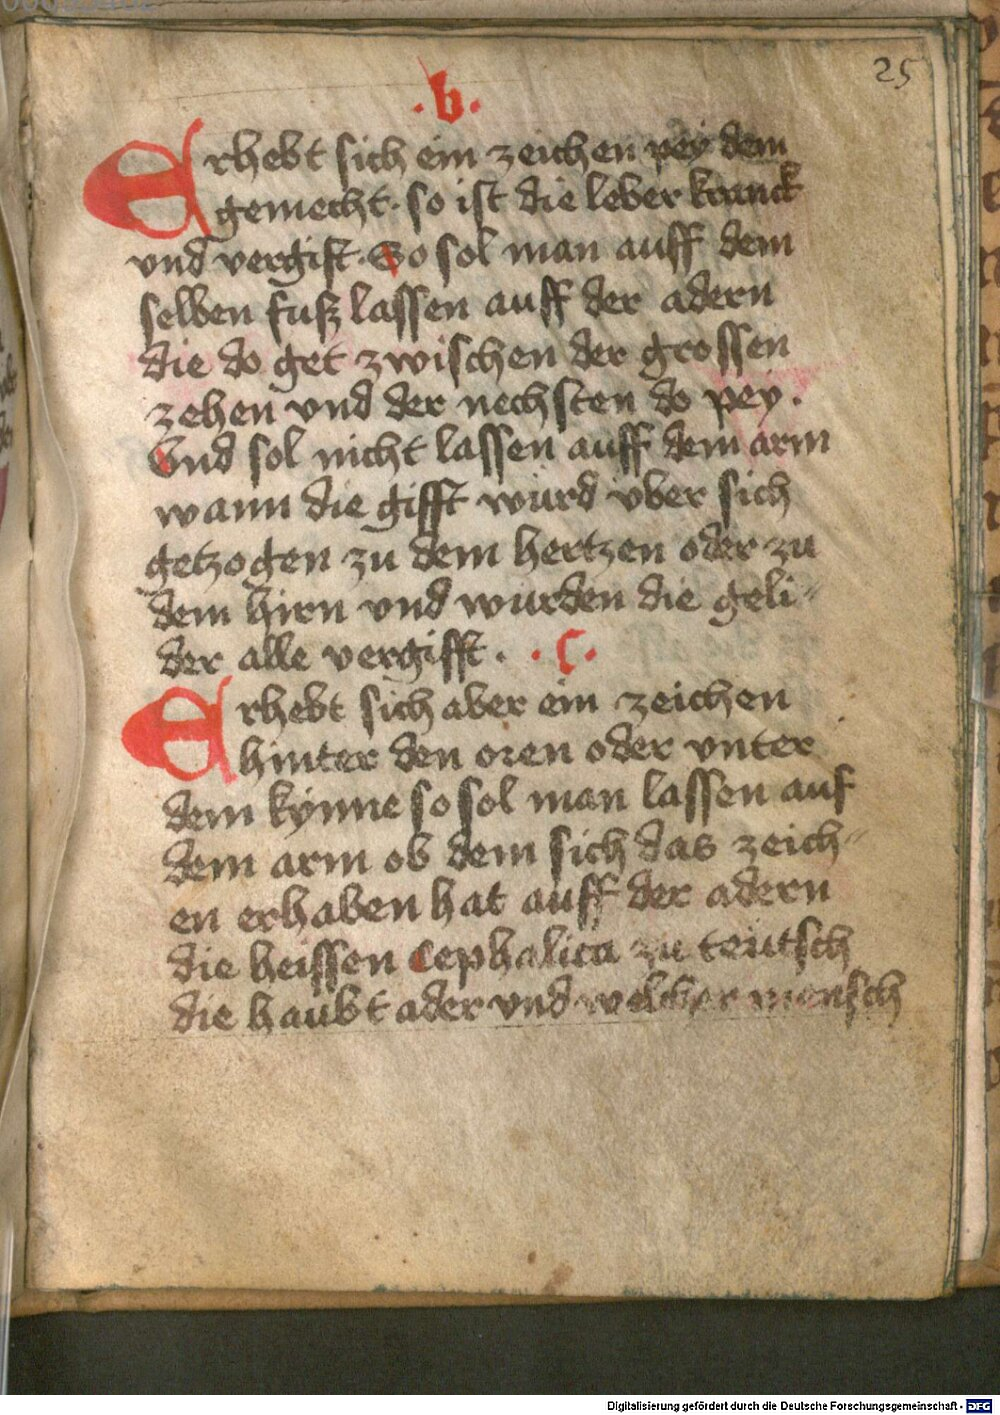 25
.b.
Erhebt sich ein zeichen pey dem
gemecht. so ist die leber kranck
vnd vergift. So sol man auff dem
selben fuß lassen auff der adern
die do get zwischen der grossen
zehen vnd der nechsten do pey.
Vnd sol nicht lassen auff dem arm
wann die gifft wurd vber sich
getzogen zu dem hertzen oder zu
dem hirn vnd wurden die geli-
der alle vergifft. .c.
Erhebt sich aber ein zeichen
hinter den oren oder vnter
dem kynne so sol man lassen auf
dem arm ob dem sich das zeich-
en erhaben hat auff der adern
die heissen Cephalica zu teutsch
die haubt ader vnd welcher mensch
Digitalisierung gefördert durch die Deutsche Forschungsgemeinschaft - DFG